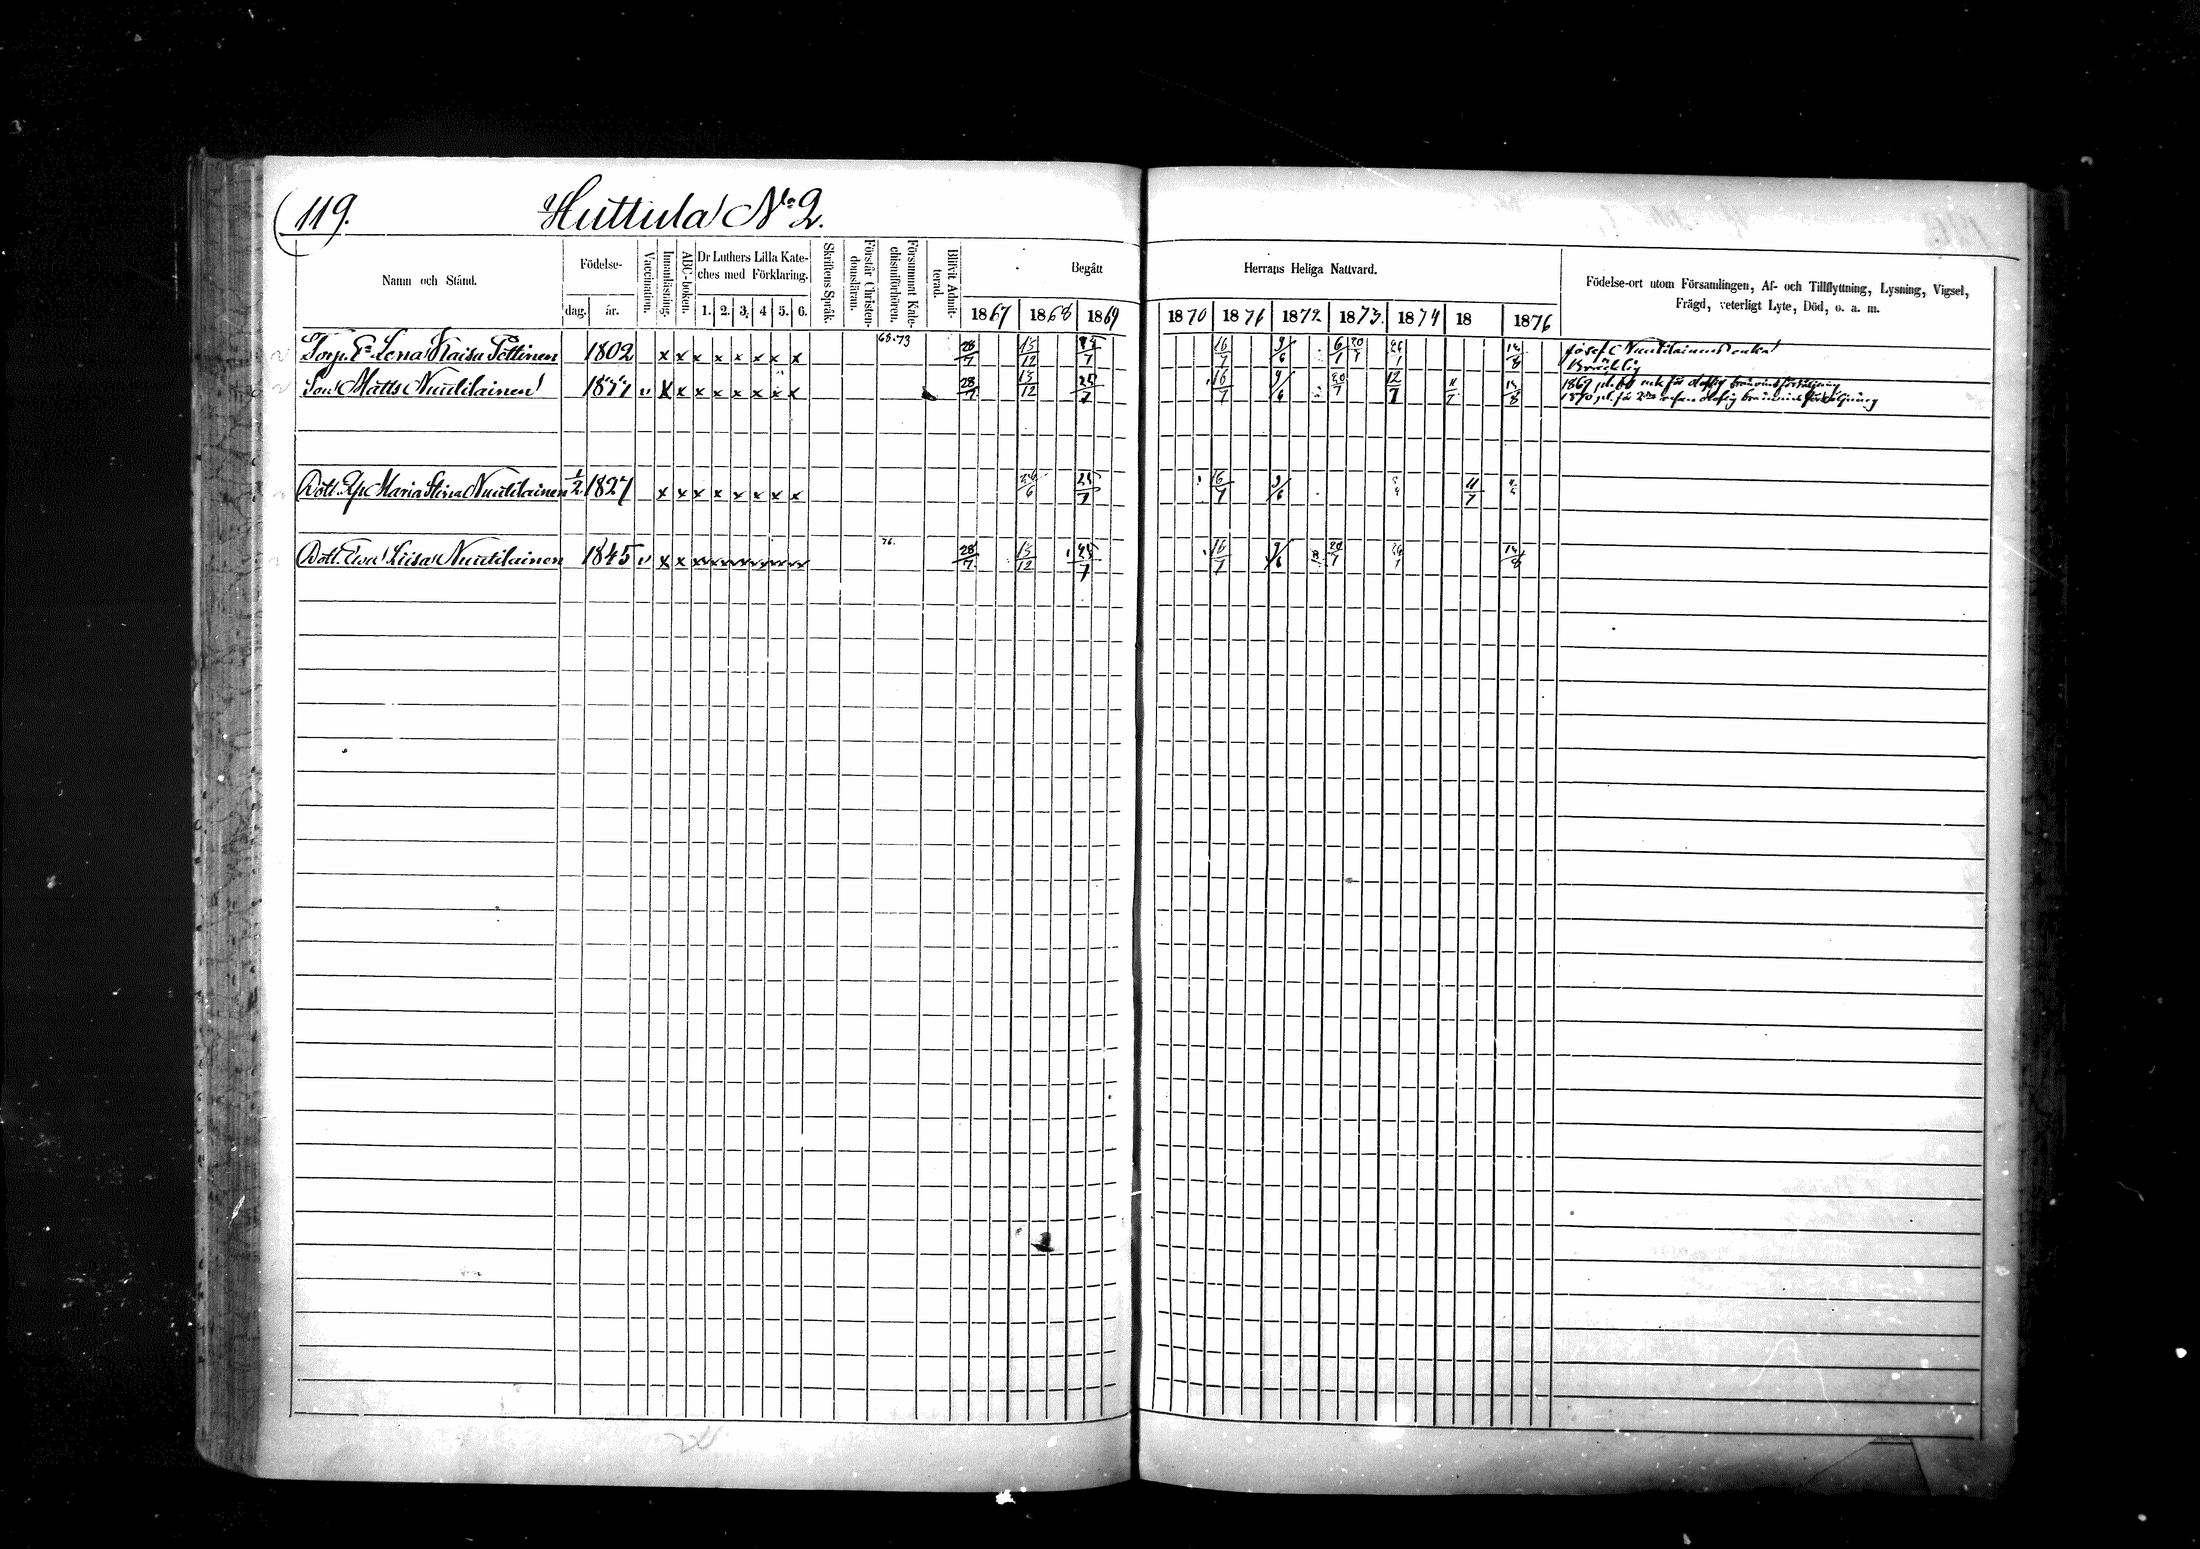 119.
Huttula No 2.
Namn och Stånd.
Födelse-
dag.
år.
Vaccination.
Innanläsning.
ABC-boken.
Dr Luthers Lilla Kate-
ches med Förklaring.
1. 2. 3. 4 5. 6.
Skriftens Språk.
Förstår Christen-
domsläran.
Försummat Kate-
chismiförhören.
Blifvit Admit-
terad.
Begått
Herrans Heliga Nattvard.
1867 1868 1869
1870 1871 1872 1873. 1874 18 1876
Födelse-ort utom Församlingen, Af- och Tillflyttning, Lysning, Vigsel,
Frägd, veterligt Lyte, Död, o. a. m.
Torp. Ea Lena Kaisa Pöttinen 1802 x x x x x x x x 68.73 28/7 13/12 25/7 16/7 9/6 6/1 20/7 14/8 Josef Nuutilainens enka
Bräcklig
Son Matts Nuutilainen " x x x x x x x x 28/7 13/12 25/7 16/7 9/6 20/7 12/7 11/7 14/8 1869 för olaflig bränvinsförsäljning
1870 för 2dra olaflig bränvinsförsäljning
Dott. Maria Stina Nuutilainen 1/2 1827 x x x x x x x x 25/7 16/7 9/6 11/7
Dott. Eva Liisa Nuutilainen 1845 " x x x x x x x x 76. 28/7 13/12 25/7 16/7 9/6 20/7 14/8